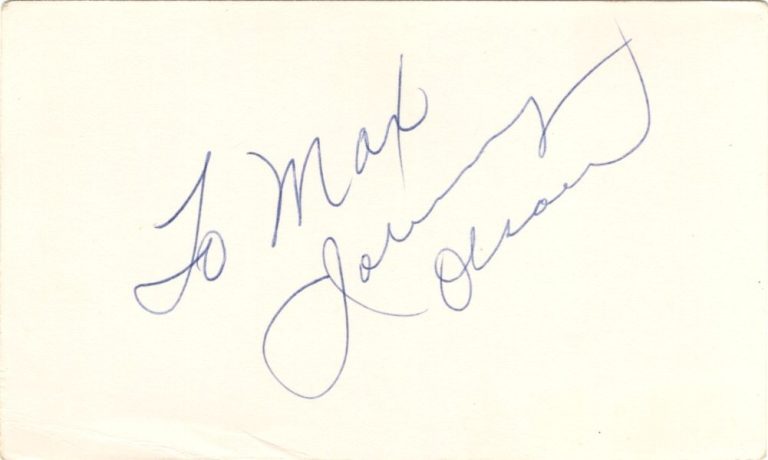 To Max
Johnny
Olson